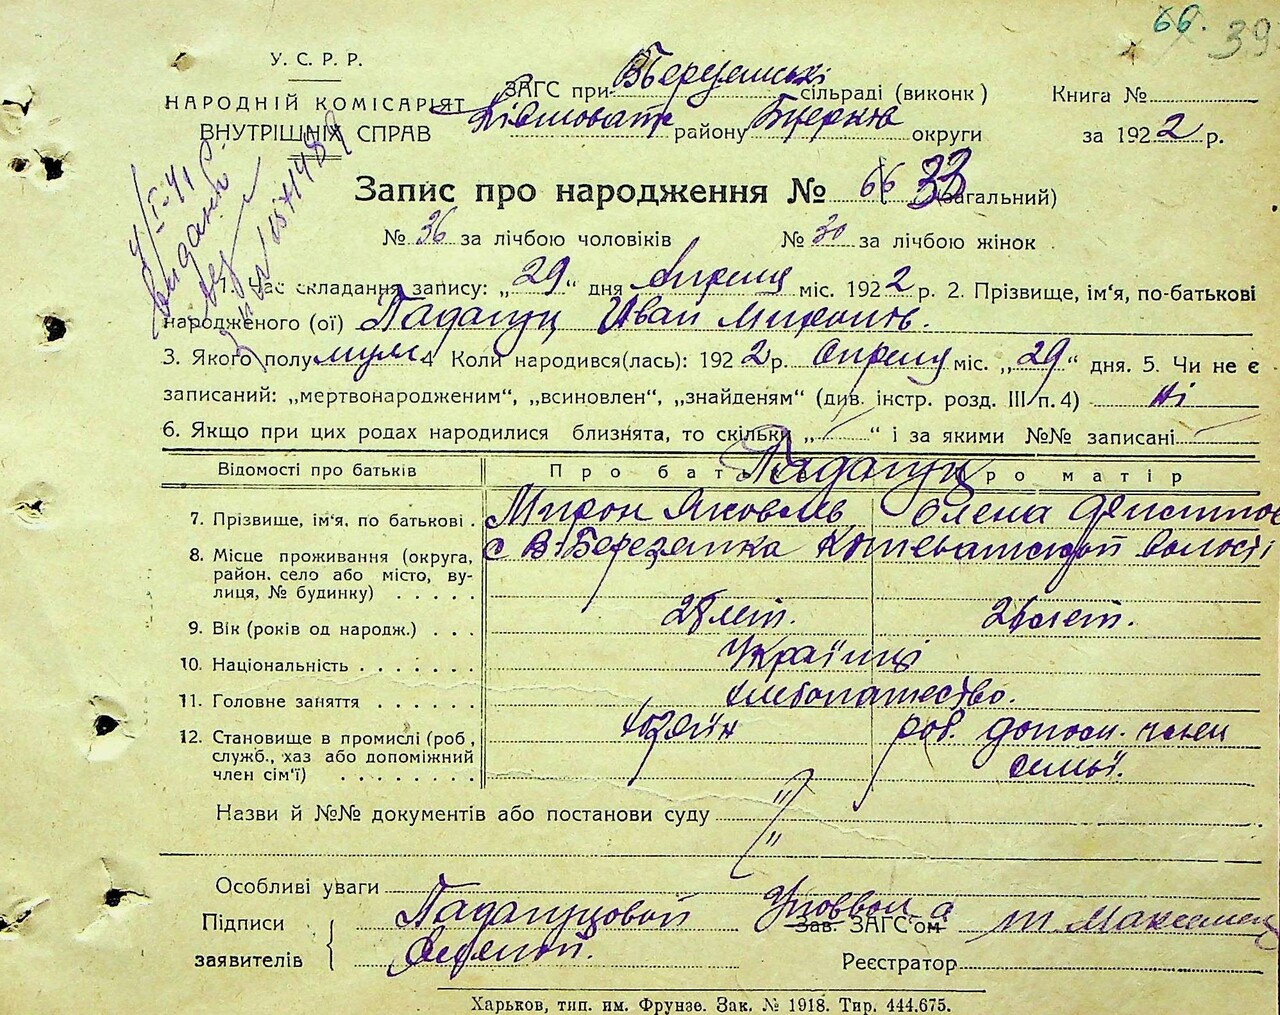 66. 39
У. С. Р. Р.
НАРОДНІЙ КОМІСАРІЯТ
ВНУТРІШНІХ СПРАВ
ЗАГС при В Березянські сільраді (виконк)
району округи
Книга №
за 1922 р.
Запис про народження № 66 33 (загальний)
№ 36 за лічбою чоловіків № 30 за лічбою жінок
1. Час складання запису: „29“ дня Апреля міс. 1922 р. 2. Прізвище, ім'я, по-батькові
народженого (ої) Падагуц Иван Миронов.
3. Якого полу муж 4 Коли народився(лась): 1922 р. Апрелу міс. „29“ дня. 5. Чи не є
записаний: „мертвонародженим“, „всиновлен“, „знайденям“ (див. інстр. розд. III п. 4) Ні
6. Якщо при цих родах народилися близнята, то скільки „ “ і за якими №№ записані
Відомості про батьків Про батька Про матір
Падагуц
7. Прізвище, ім'я, по батькові . Мирон Яковлев Олена
8. Місце проживання (округа, с В. Березянка волості
район, село або місто, ву-
лиця, № будинку) . . . . .
9. Вік (років од народж.) . . . 28 лет. 26 лет.
10. Національність . . . . . . . Українці
11. Головне заняття . . . . . . хлебопашество.
12. Становище в промислі (роб., хозяїн роб. допом. член
служб., хаз або допоміжний семьї.
член сім'ї) . . . . . . .
Назви й №№ документів або постанови суду "
"
Особливі уваги
Підписи Падагуцовой
заявителів Еленой.
Зав. ЗАГС'ом
Реєстратор
Харьков, тип. им. Фрунзе. Зак. № 1918. Тир. 444.675.